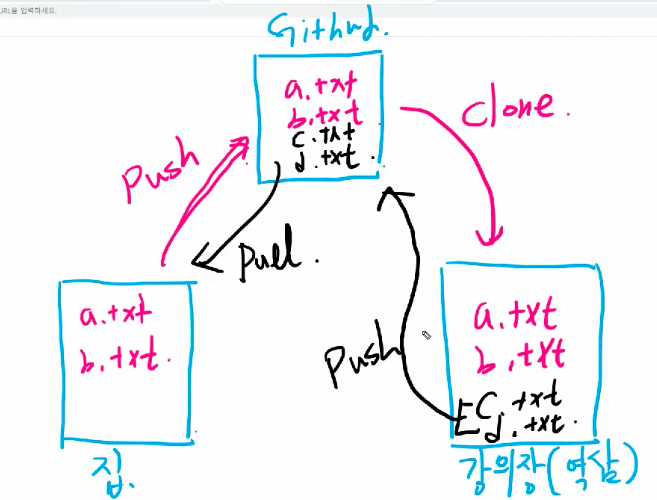 URL을 입력하세요.
Github.
a.txt
b.txt
c.txt
d.txt.
Clone.
Push
Pull.
a.txt
b.txt.
집.
Push
a.txt
b.txt
c.txt
d.txt.
강의장(역삼)